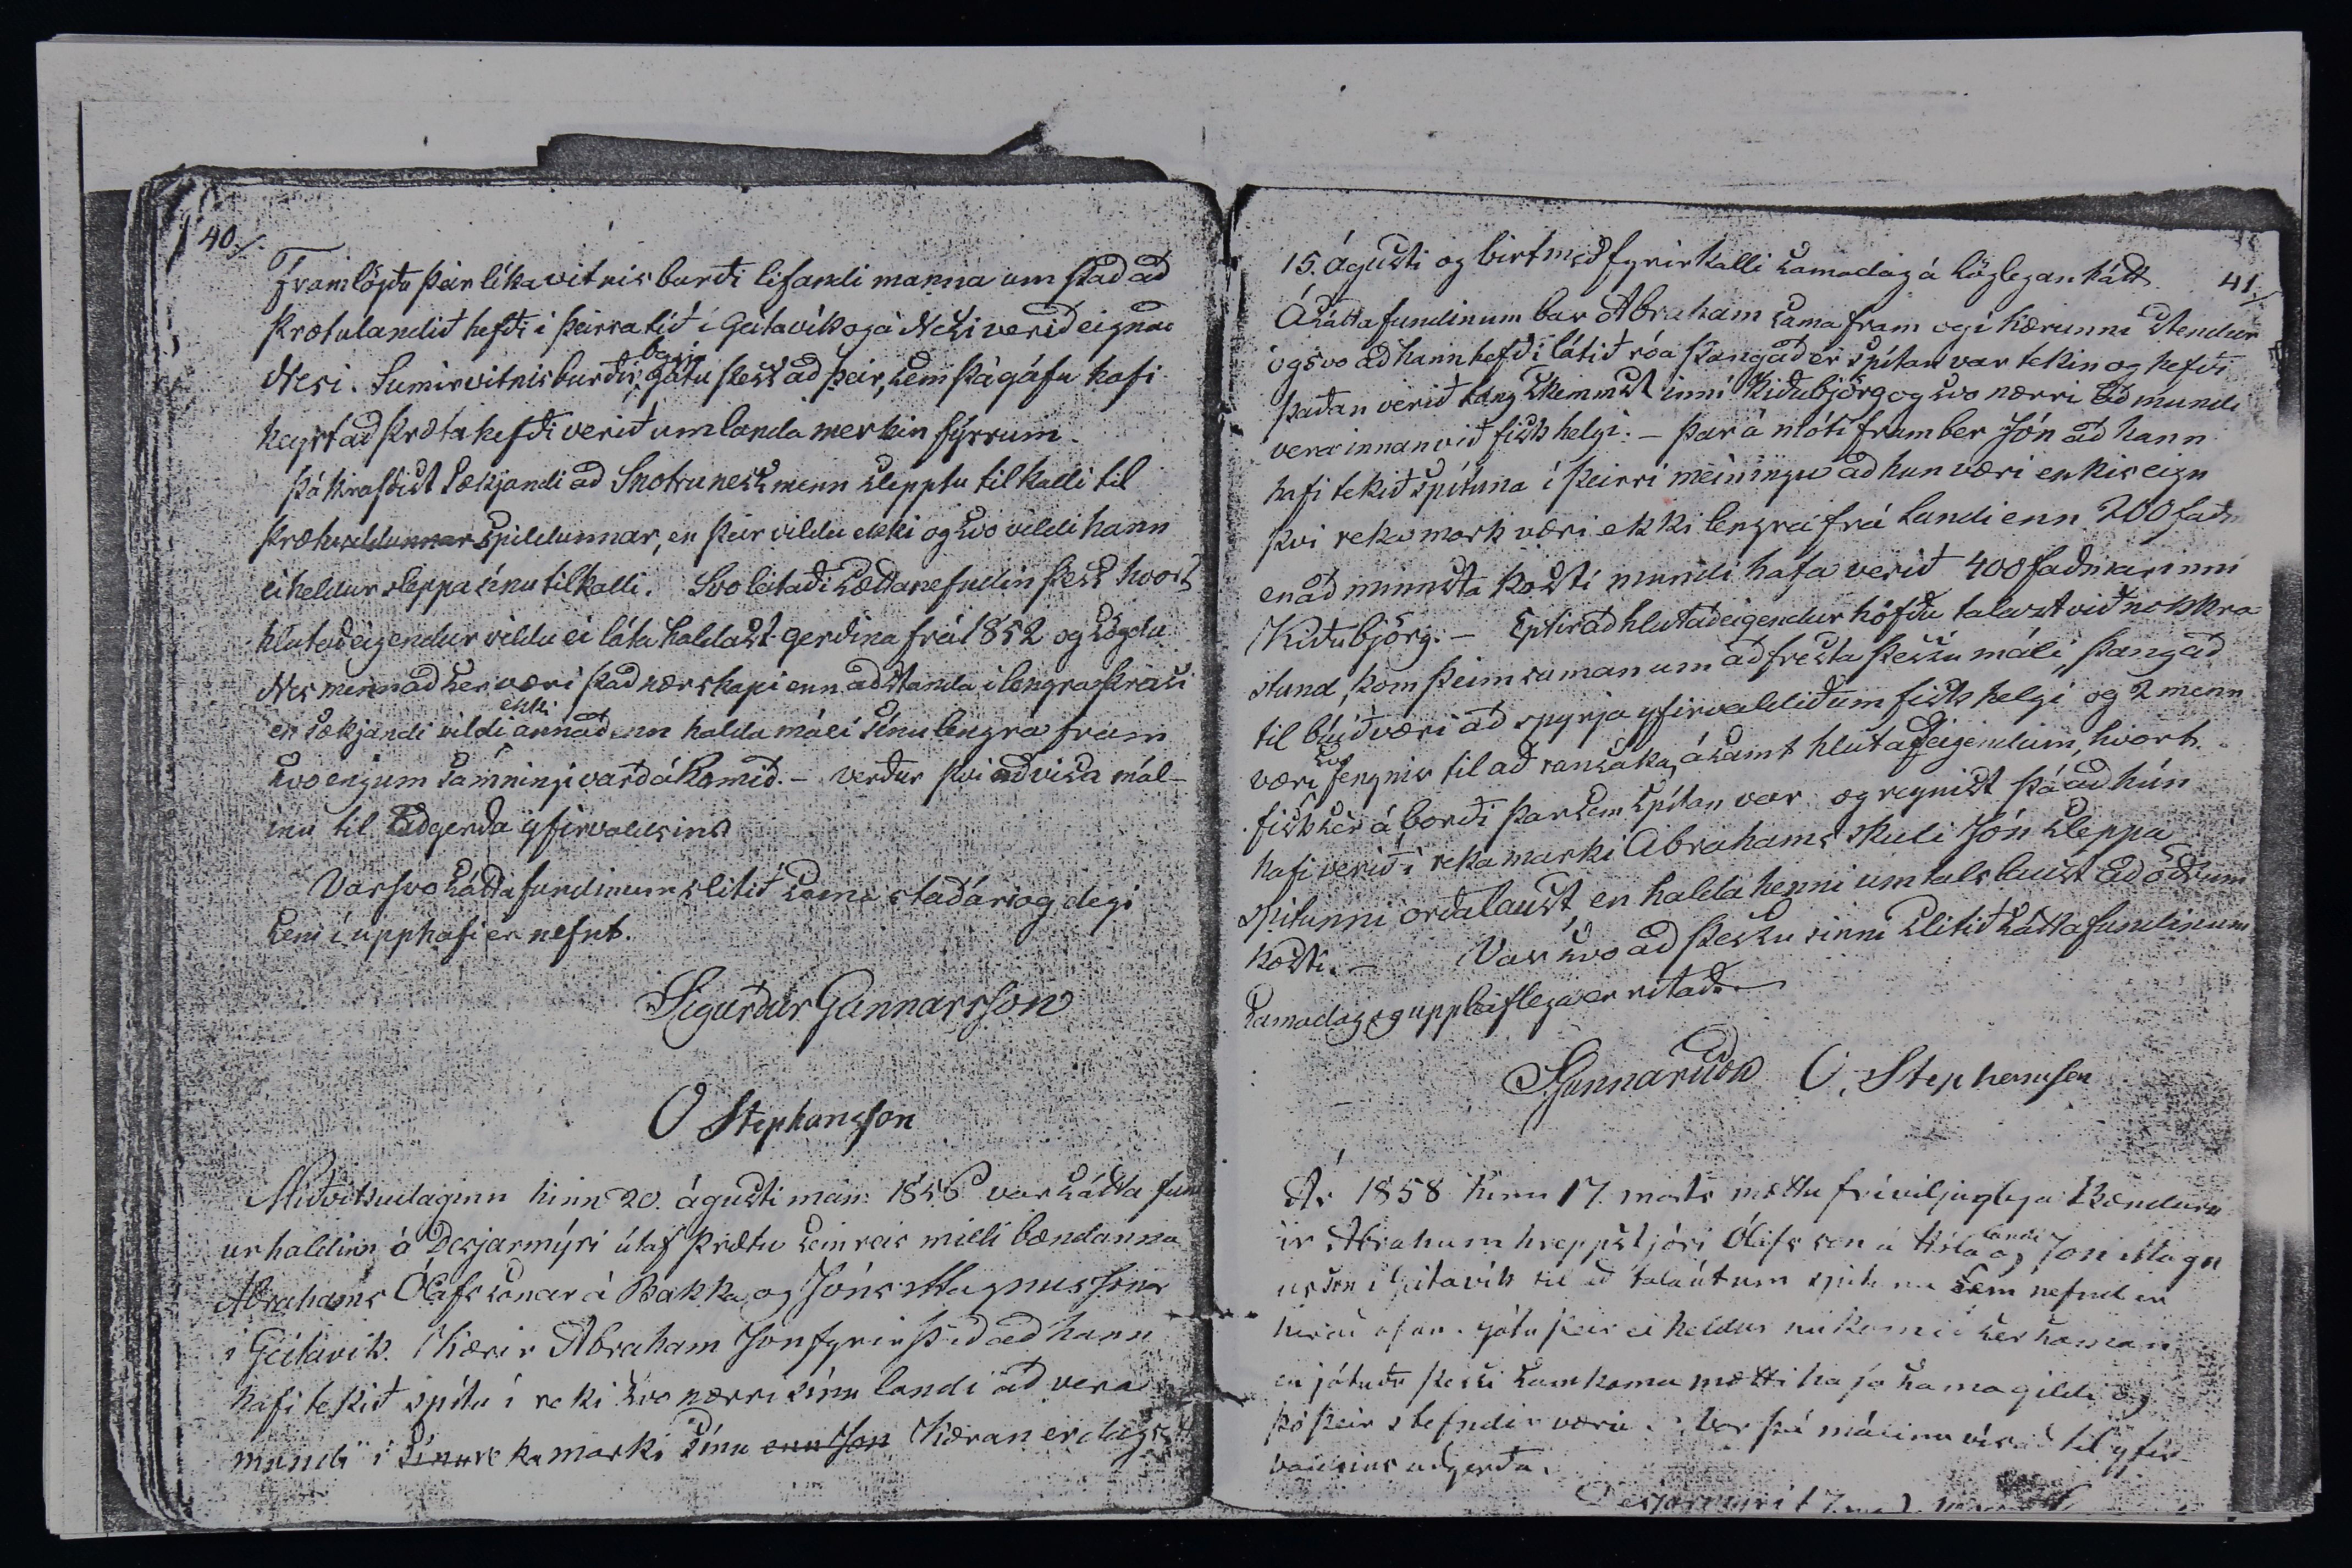 40/.
Framlögðu þeir líka vitnisburði lifandi manna um það að
þrætulandið hefði í þeirra tíð í Geitavík og á Nesi verið eignað
Nesi. Sumir vitnisburðir, gátu þess að þeir, sem þá gáfu hafi
heyrt að þræta hefði verið um landamerkin fyrrum.
Þá krafðist sækjandi að Snotruness menn slepptu tilkalli til
þrætu spildunnar, en þeir vildu ekki og svo vildi hann
ei heldur sleppa sínu tilkalli. Svo leitaði sættanefndin þess hvort
hlutaðeigendur vildu ei láta haldast gerðina frá 1852 og sögdu
Nesmenn að sér væri það nær skapi enn að standa í lengra þrasi
en sækjandi vildi ekki annað enn halda máli sínu lengra fram
svo engum samningi varð á komið. - verður því að vísa mál-
inu til aðgerða yfirvaldsins
Var svo sáttafundinum slitið sama stað ár og degi
sem í upphafi er nefnt.
Sigurður Gunnarsson
O Stephansson
Miðvikudaginn hinn 20. ágústi mán: 1856 var sátta fun
ur haldinn á Desjarmýri útaf þrætu sem reis milli bændanna
Abrahams Ólafssonar á Bakka og Jóns Magnussonar
í Geitavík. Kærir Abraham Jón fyrir það að hann
hafi tekið spítu í reki svo nærri sínu landi að vera
mundi í sínu rekamarki sínu enn Jón Kæran er dags
41/
15. Ágústi og birt með fyrirkalli samadag á löglegan hátt.
Á sáttafundinum bar Abraham sama fram og í kærunni stendur
ogsvo að hann hefði látið róa þangað er spítan var tekin og hefði
þaðan verið lang skemmst inní Kiðubjörg og svo nærri að mundi
vera innanvið fiskhelgi. - Þar á móti framber Jón að hann
hafi tekið spítuna í þeirri meiningu að hun væri enkis eign
því rekamark væri ekki lengra frá landi enn 200 faðm
en að minnsta kosti mundi hafa verið 400 faðmar inní
Kiðubjörg. - Eptir að hlutaðeigendur höfðu talast við nokkra
stund, kom þeim saman um að fresta þessu máli, þangað
til búið væri að spyrja yfirvaldið um fiskhelgi og 2 menn
væri svo fengnir til að ransaka, ásamt hlutaðeigendum, hvort
fisk sér á borði þar sem spítan var og reynist þá að hún
hafi verið í rekamarki Abrahams skuli Jón sleppa
spítunni orðalaust en halda henni umtalslaust að öðrum
kosti. - Var svo að þessu sinni slitið sáttafundinum
samadag og uppleiflega er ritað.
SGunnarsson O. Stephensen
Ár 1858 hinn 17. marts mættu fríviljuglega Bændurn
ir Abraham hreppstjóri Ólafsson á og Jón Magn
usson í Geitavík til að tala út um spítuna sem nefnd er
hér að ofan. gátu þeir ei heldur nú komið sér saman
en játuðu þessi samkoma mætti hafa sama gildi og
þó þeir stefndir væru. Var þá málinu vísað til yfir-
valdsins aðgerða.
Desjarmýri 17.